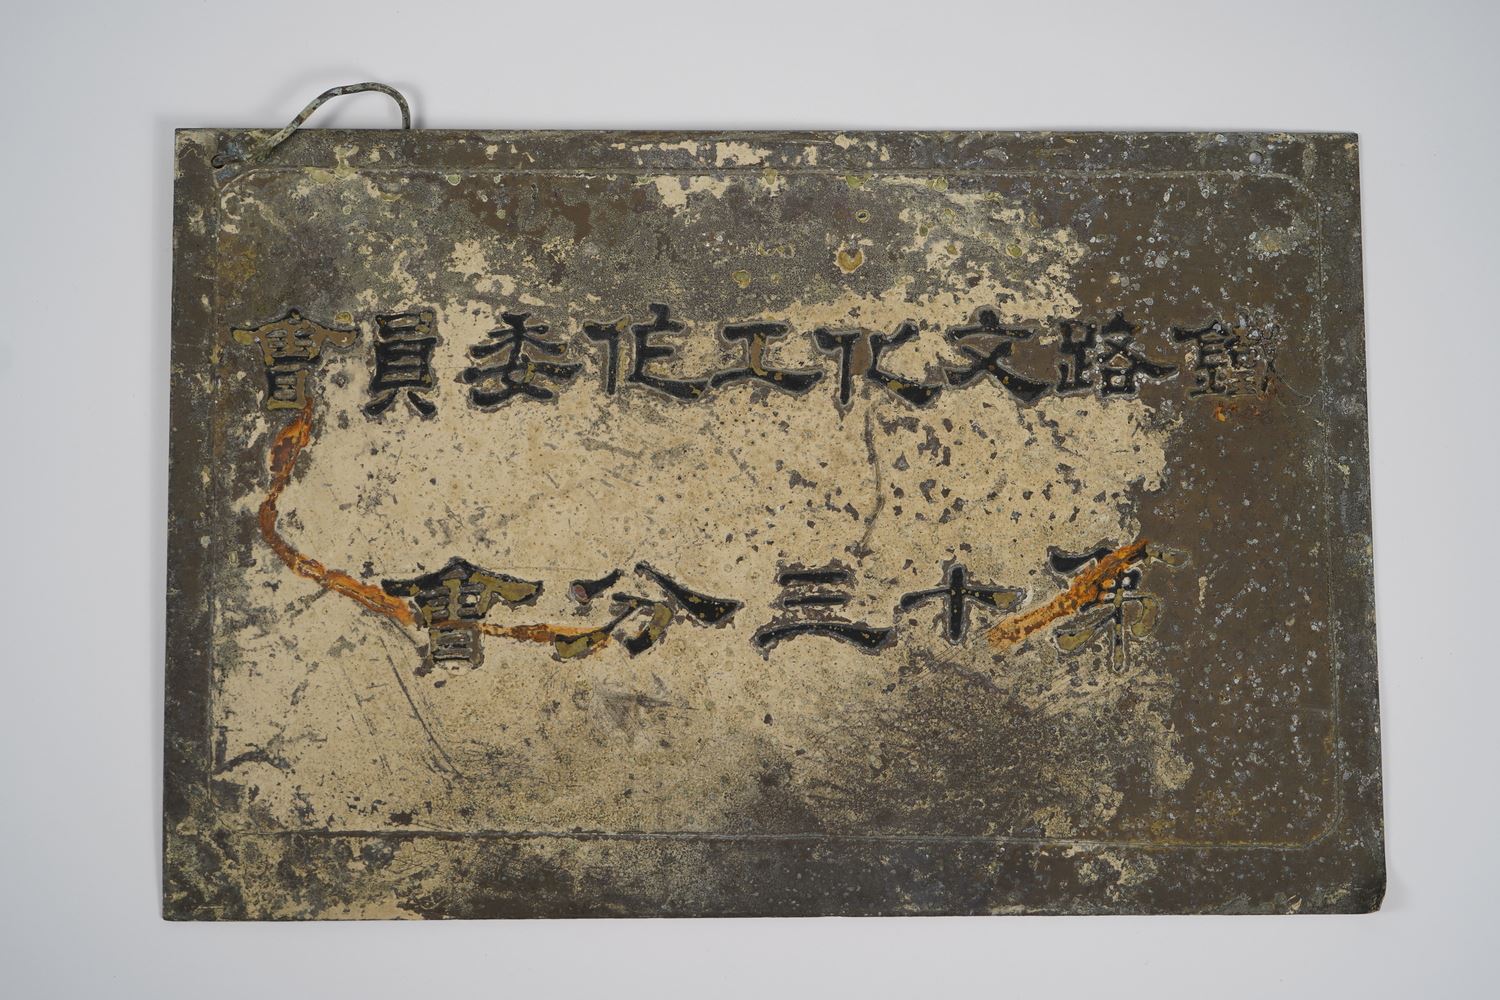 鐵路文化工作委員會
第十三分會